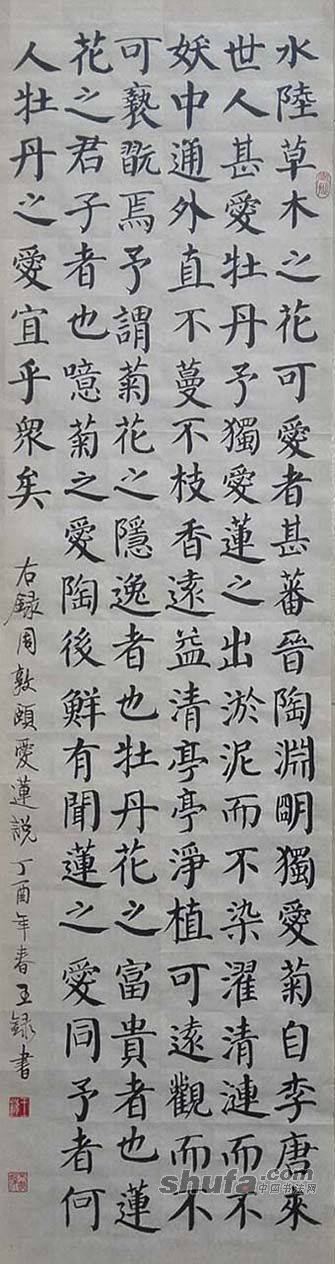 水陸草木之花可愛者甚蕃晉陶淵明獨愛菊自李唐來
世人甚愛牡丹予獨愛蓮之出淤泥而不染濯清漣而不
妖中通外直不蔓不枝香遠益清亭亭淨植可遠觀而不
可褻翫焉予謂菊花之隱逸者也牡丹花之富貴者也蓮
花之君子者也噫菊之愛陶後鮮有聞蓮之愛同予者何
人牡丹之愛宜乎眾矣
右錄周敦頤愛蓮說丁酉年春王錄書
shufa.com
中国书法网